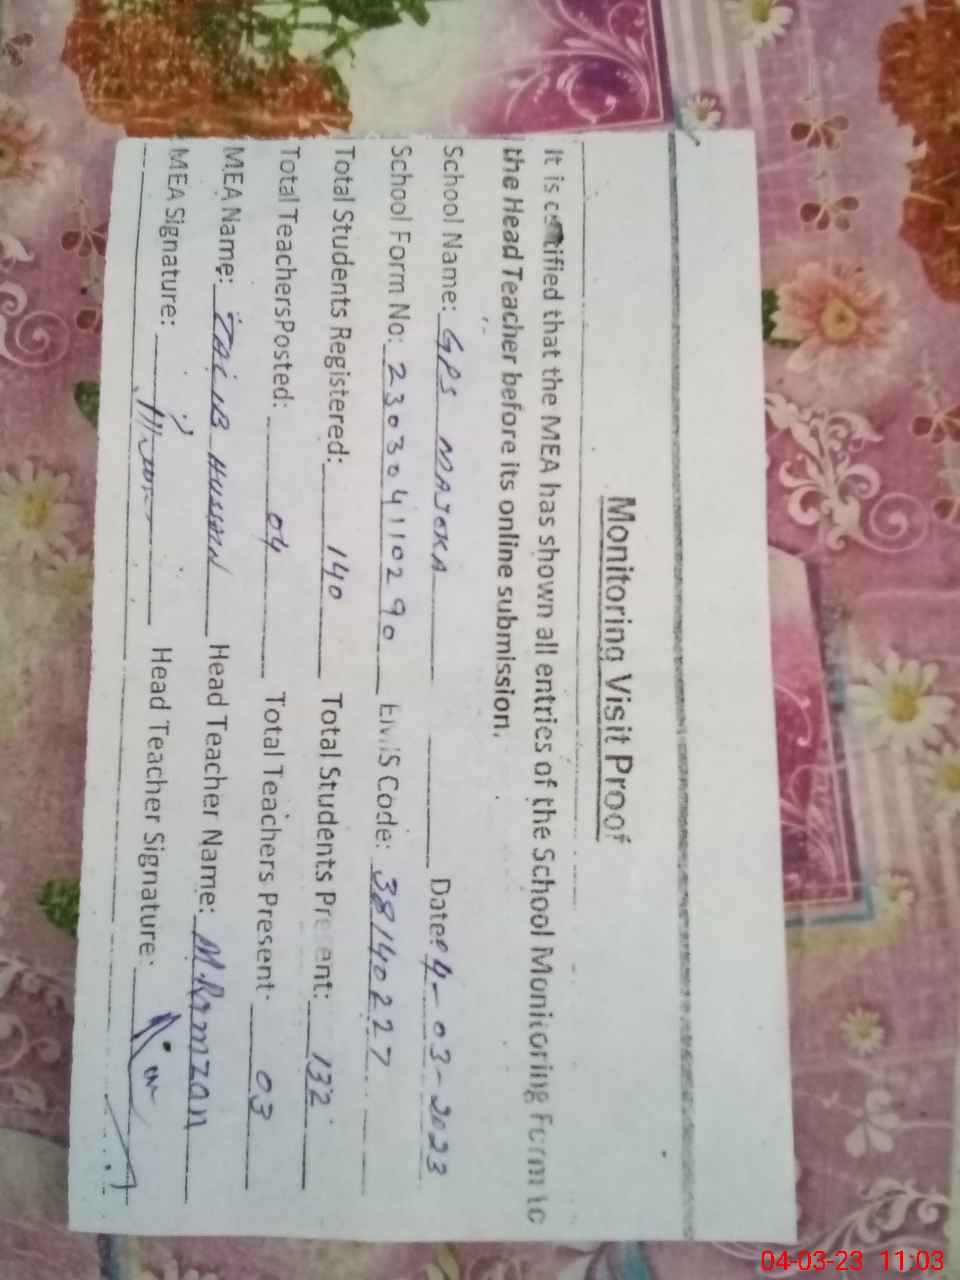 Monitoring Visit Proof
It is certified that the MEA has shown all entries of the School Monitoring Form to
the Head Teacher before its online submission.
School Name: GPS MAJOKA Date: 04-03-2023
School Form No: 230304110290 EMIS Code: 38140227
Total Students Registered: 140 Total Students Present: 132
Total TeachersPosted: 04 Total Teachers Present: 03
MEA Name: TALIB HUSSAIN Head Teacher Name: M.Ramzan
MEA Signature: Head Teacher Signature:
04-03-23 11:03